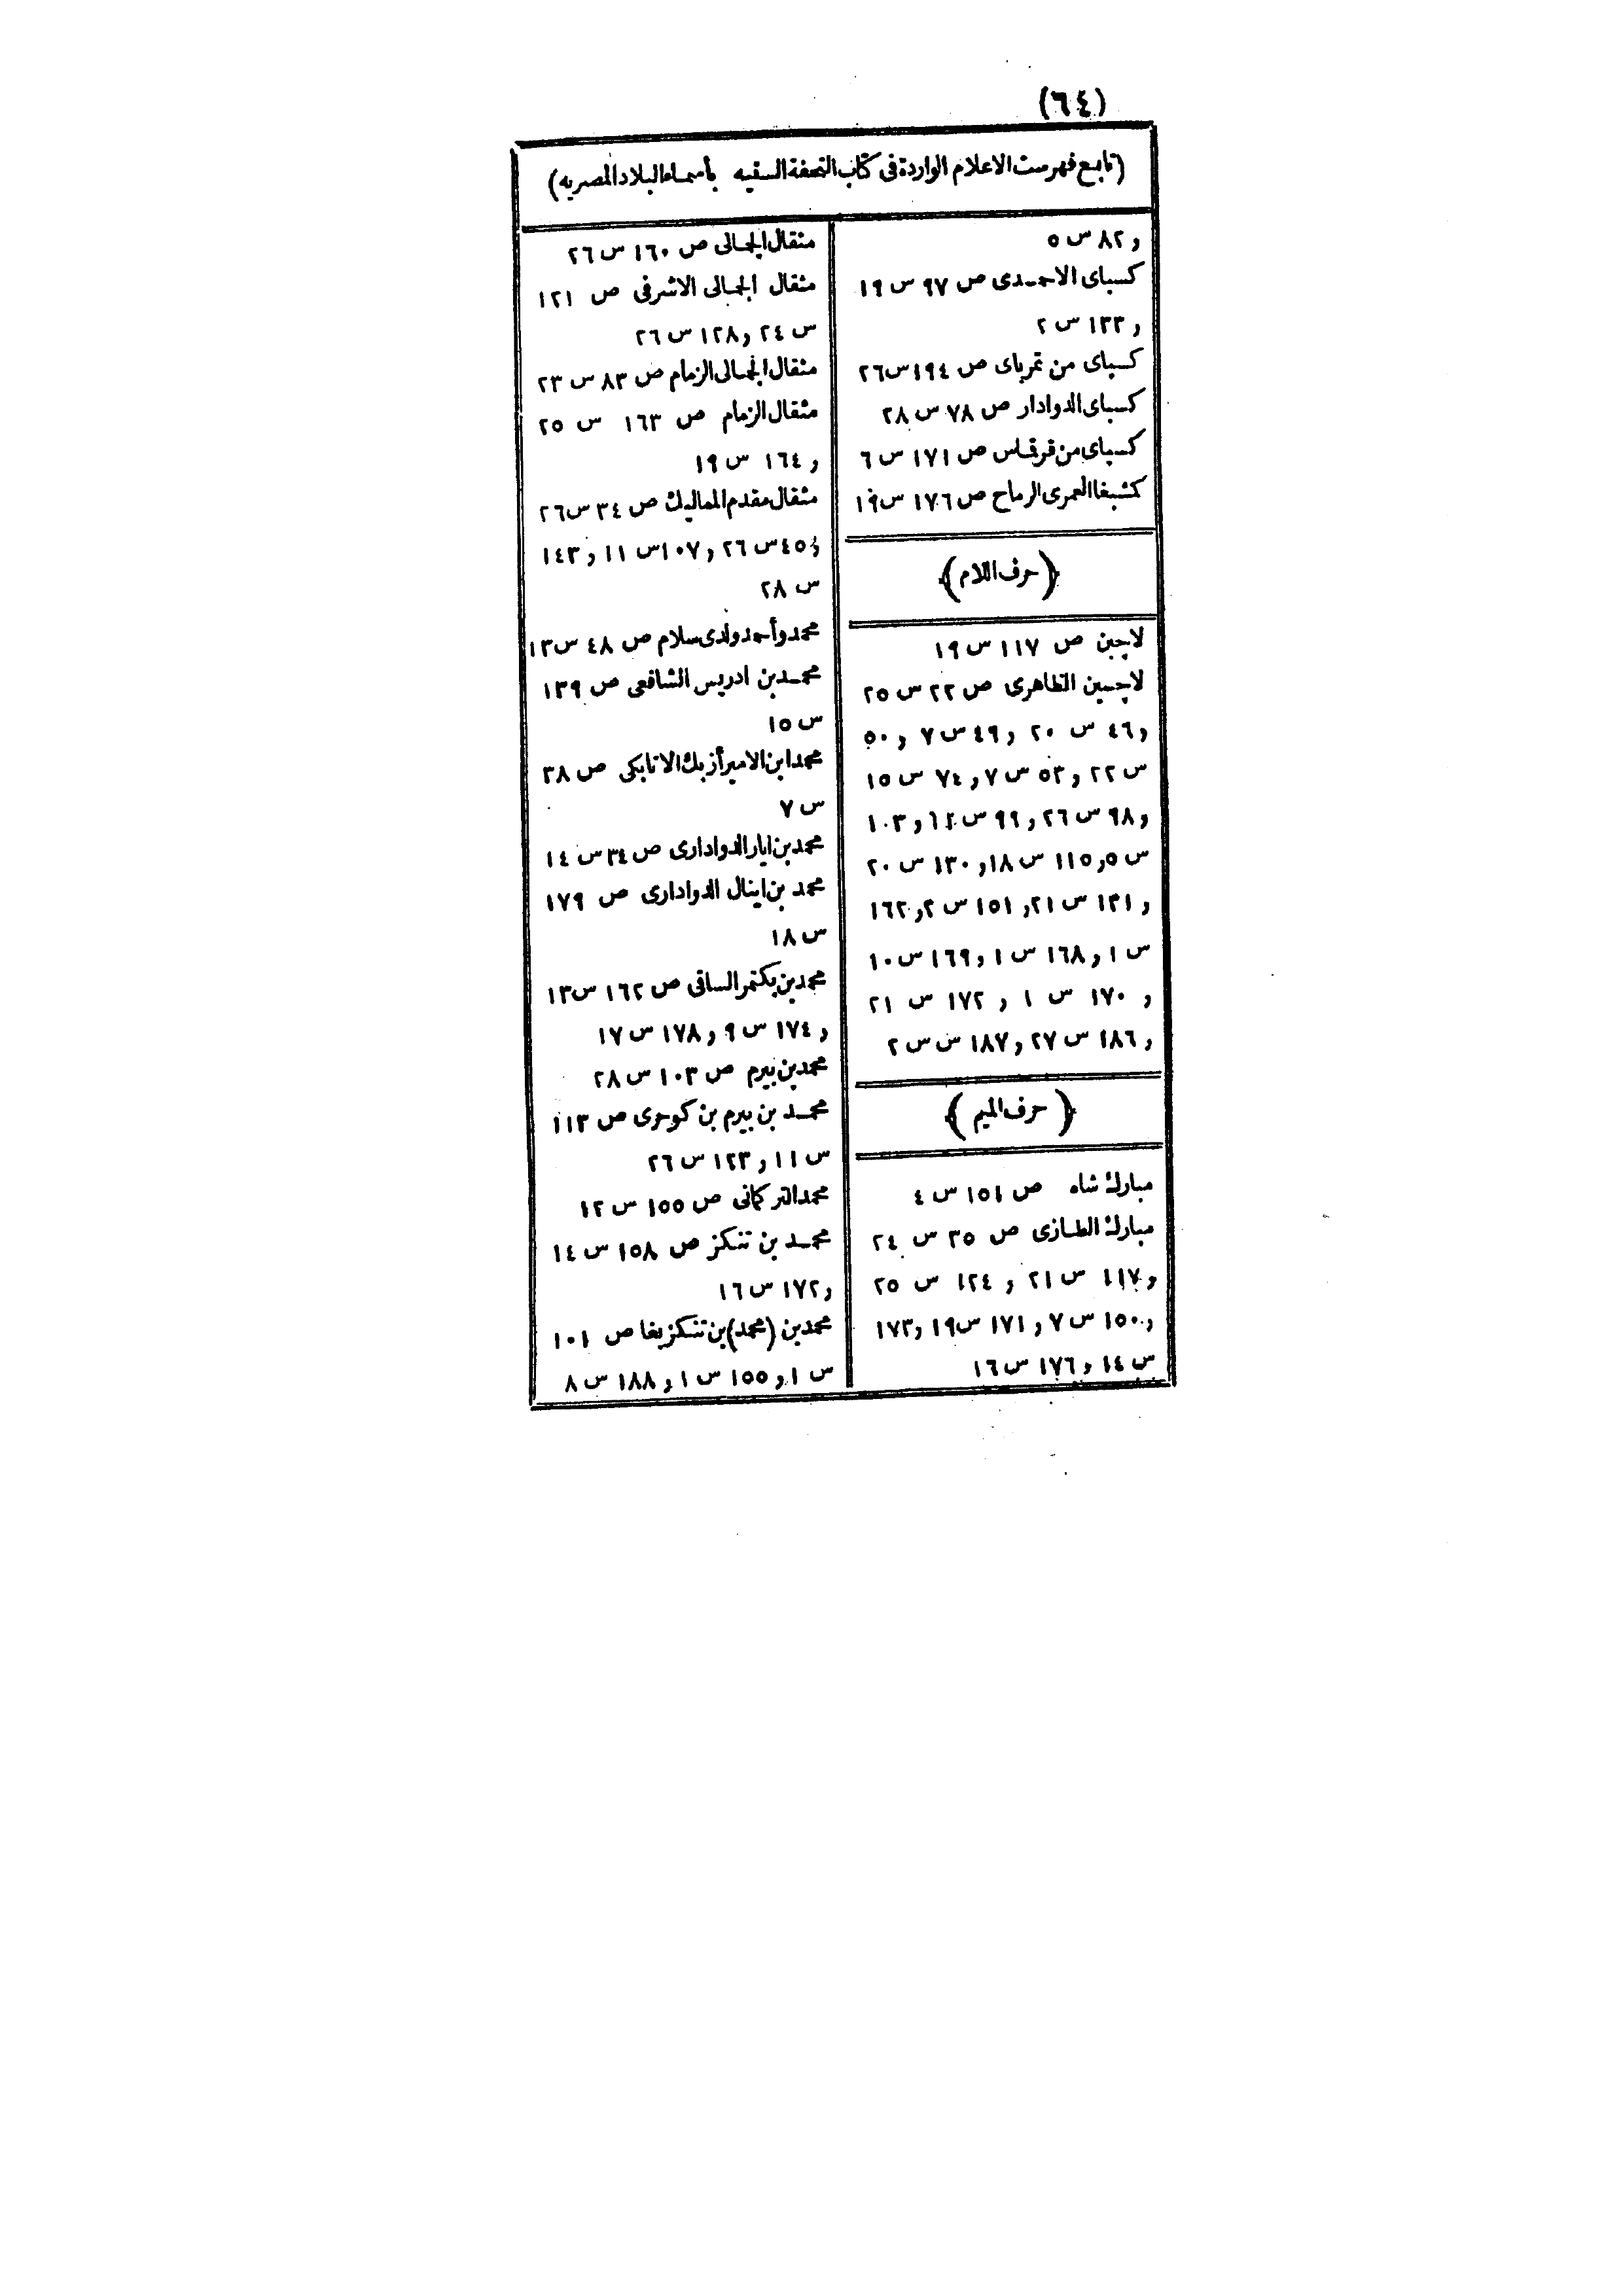 (٦٤)
(تابع فهرست الاعلام الواردة فى كتاب التحفة السنيه بأسماء البلاد المصريه)
و ٨٢ س ٥
كسباى الاحمدى ص ٩٧ س ١٩
و ١٣٣ س ٢
كسباى من تمرباى ص ١٩٤ س ٢٦
كسباى الدوادار ص ٧٨ س ٢٨
كسباى من قرقماس ص ١٧١ س ٦
كمشبغا العمرى الرماح ص ١٧٦ س ١٩
(حرف اللام)
لاجين ص ١١٧ س ١٩
لاجين الظاهرى ص ٢٢ س ٢٥
و ٤٦ س ٢٠ و ٤٩ س ٧ و ٥٠
س ٢٢ و ٥٣ س ٧ و ٧٤ س ١٥
و ٩٨ س ٢٦ و ٩٩ س ١٢ و ١٠٣
س ٥ و ١١٥ س ١٨ و ١٣٠ س ٢٠
و ١٣١ س ٢١ و ١٥١ س ٢ و ١٦٢
س ١ و ١٦٨ س ١ و ١٦٩ س ١٠
و ١٧٠ س ١ و ١٧٢ س ٢١
و ١٨٦ س ٢٧ و ١٨٧ س س ٢
(حرف الميم)
مبارك شاه ص ١٥١ س ٤
مبارك الطازى ص ٣٥ س ٢٤
و ١١٧ س ٢١ و ١٢٤ س ٢٥
و ١٥٠ س ٧ و ١٧١ س ١٩ و ١٧٣
س ١٤ و ١٧٦ س ١٦
مثقال الجمالى ص ١٦٠ س ٢٦
مثقال الجمالى الاشرفى ص ١٢١
س ٢٤ و ١٢٨ س ٢٦
مثقال الجمالى الزمام ص ٨٣ س ٢٣
مثقال الزمام ص ١٦٣ س ٢٥
و ١٦٤ س ١٩
مثقال مقدم المماليك ص ٣٤ س ٢٦
و ٤٥ س ٢٦ و ١٠٧ س ١١ و ١٤٣
س ٢٨
محمد وأحمد ولدى سلام ص ٤٨ س ١٣
محمد بن ادريس الشافعى ص ١٣٩
س ١٥
محمد ابن الامير أزبك الاتابكى ص ٣٨
س ٧
محمد بن اياز الدوادارى ص ٣٤ س ١٤
محمد بن اينال الدوادارى ص ١٧٩
س ١٨
محمد بن بكتمر الساقى ص ١٦٢ س ١٣
و ١٧٤ س ٩ و ١٧٨ س ١٧
محمد بن بيرم ص ١٠٣ س ٢٨
محمد بن بيرم بن كوجرى ص ١١٣
س ١١ و ١٢٣ س ٢٦
محمد التركمانى ص ١٥٥ س ١٢
محمد بن تنكز ص ١٥٨ س ١٤
و ١٧٢ س ١٦
محمد بن (محمد) بن تنكز بغا ص ١٠١
س ١ و ١٥٥ س ١ و ١٨٨ س ٨